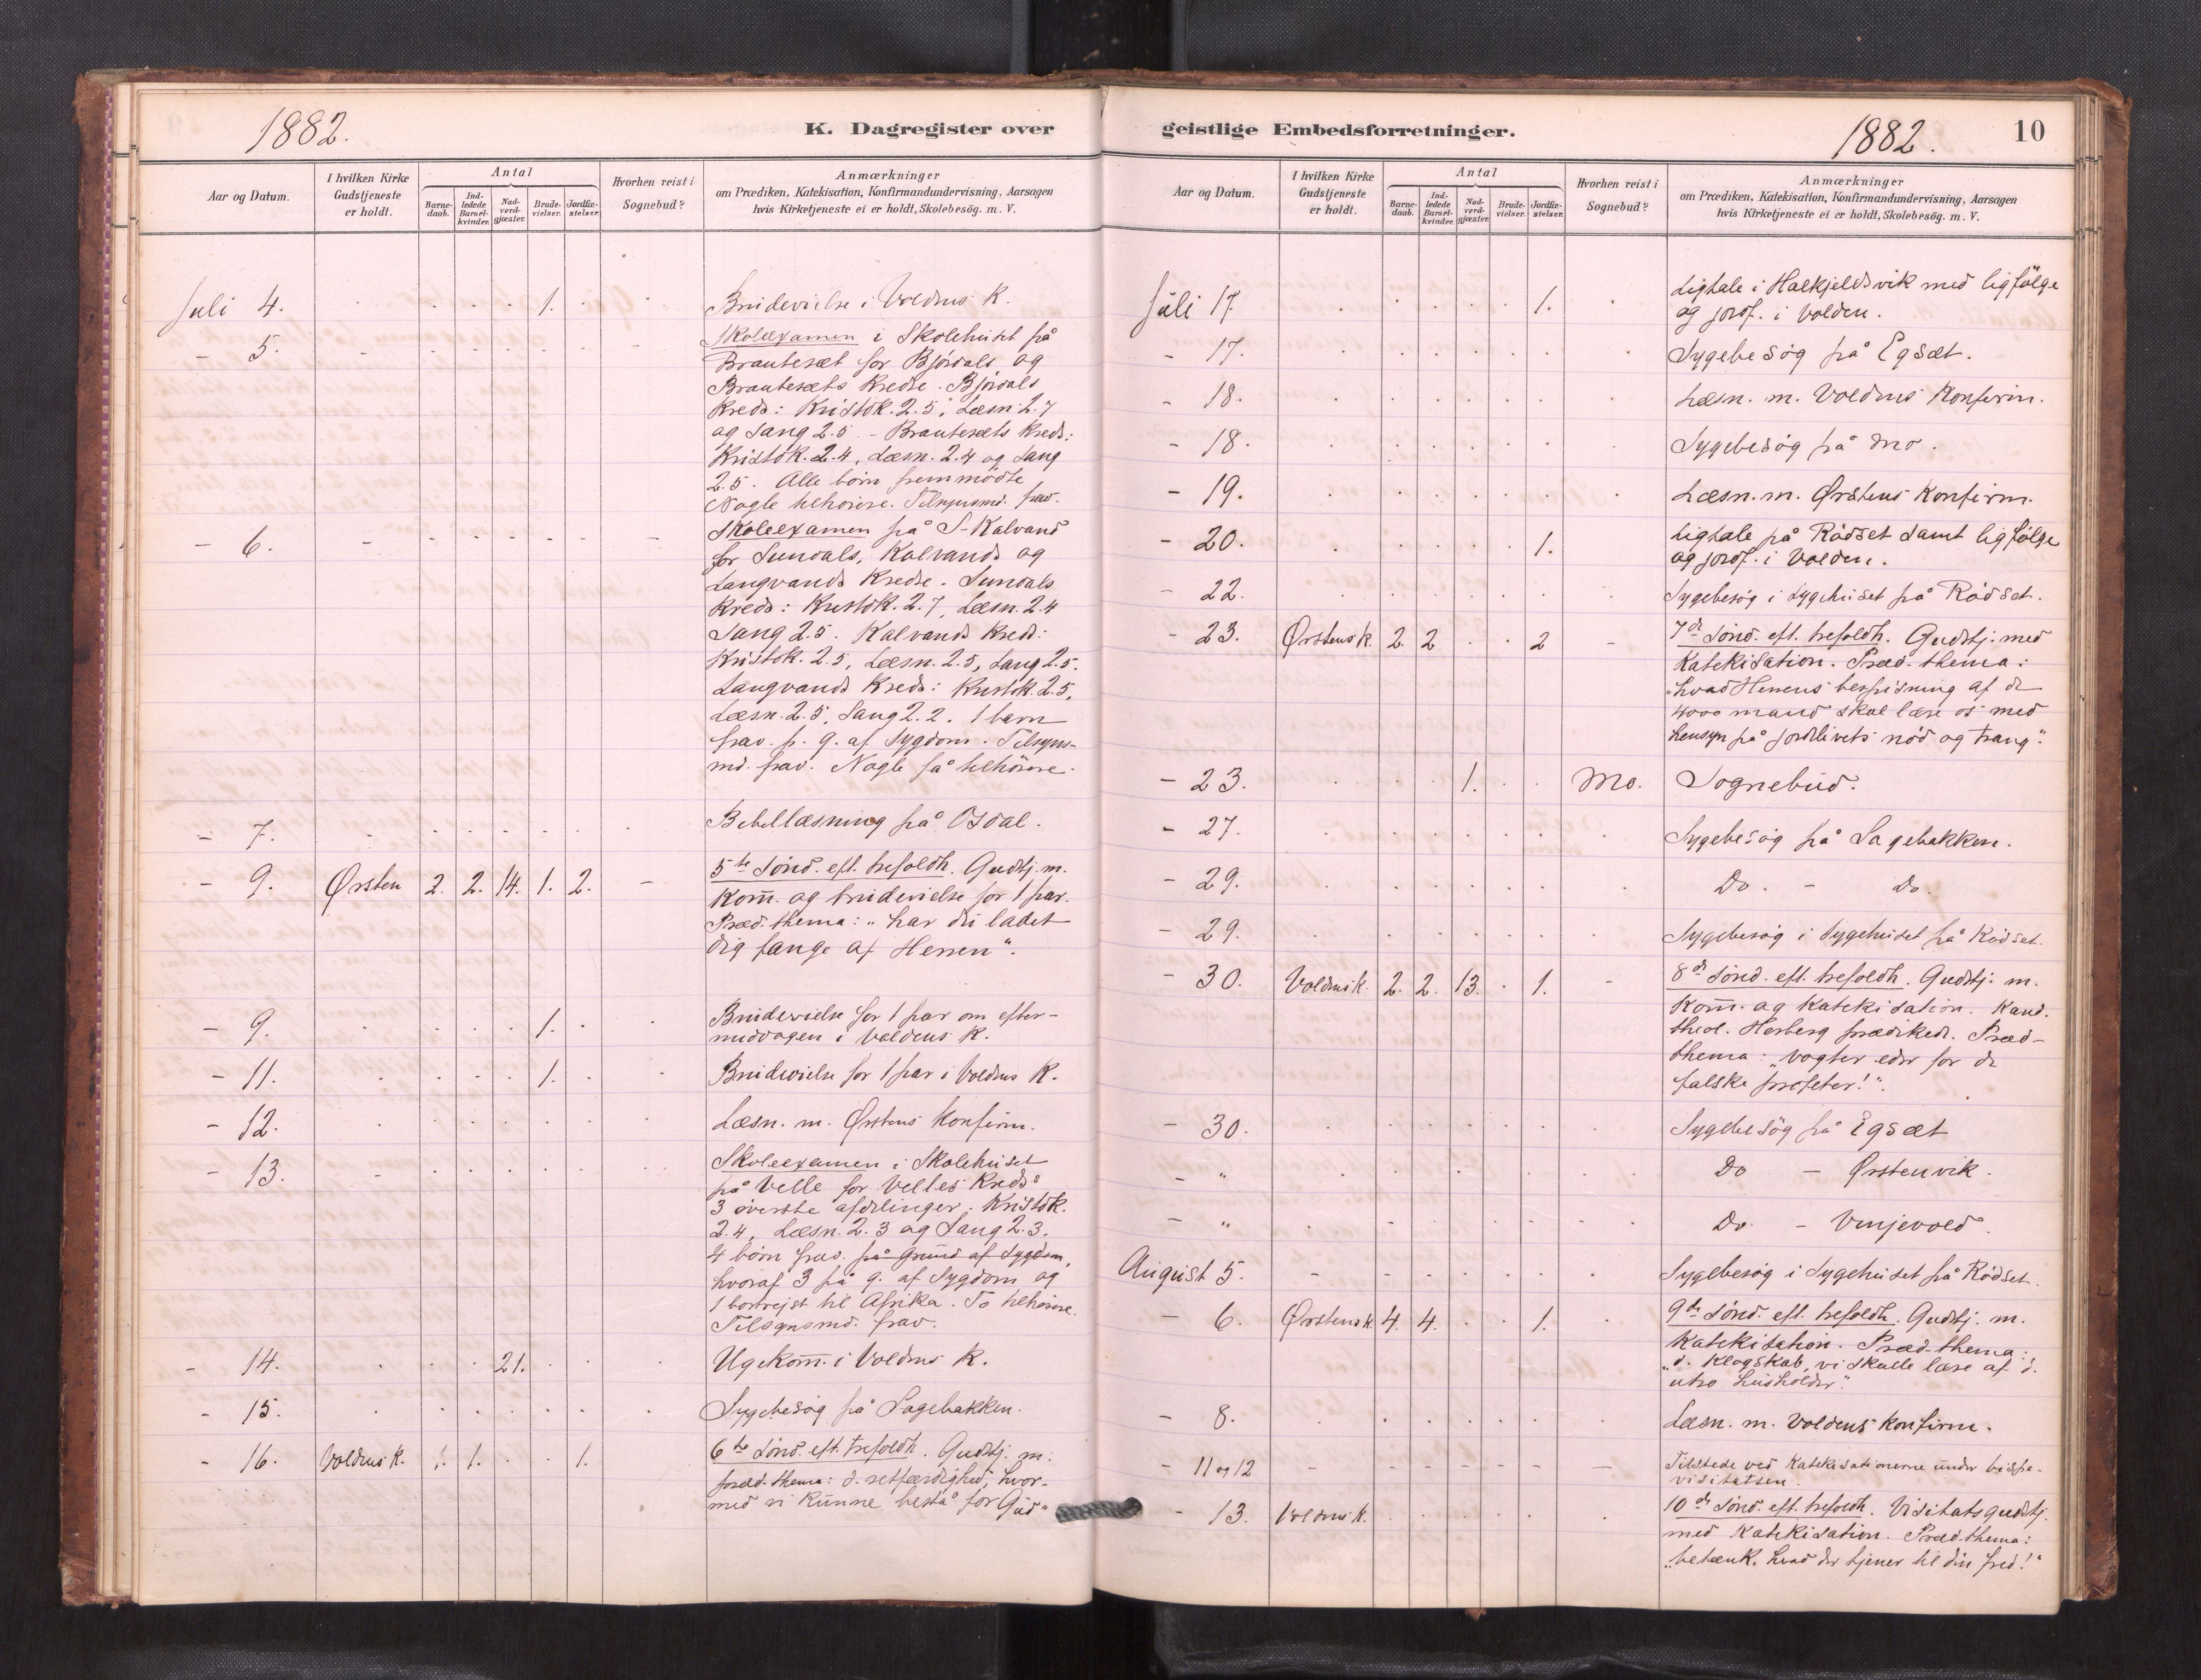 1882.
K. Dagregister over
Aar og Datum.
I hvilken Kirke
Gudstjeneste
er holdt.
Antal
Barne-
daab.
Ind-
ledede
Barsel-
kvinder.
Nad-
verd-
gjæster.
Brude-
vielser.
Jordfæ-
stelser.
Hvorhen reist i
Sognebud?
Anmærkninger
om Prædiken, Katekisation, Konfirmandundervisning, Aarsagen
hvis Kirketjeneste ei er holdt, Skolebesög. m. V.
Juli 4. 1. Brudevielse i Voldens K.
- 5. Skoleexamen i Skolehuset på
Brautesæt for Björdals og
Brautesæts Kredse. Björdals
Kreds: Kristdk. 2.5, Læsn. 2.7
og Sang 2.5 - Brautesæts Kreds:
Kristdk. 2.4, Læsn. 2.4 og Sang
2.5. Alle börn fremmödte
Nogle tilhörere. Tilsynsmd. frav.
- 6. Skoleexamen på S-Kalvand
for Sundals, Kalvands og
Langvands Kredse. Sundals
Kreds: Kristdk. 2.7, Læsn. 2.4
Sang 2.5. Kalvands Kreds:
Kristdk. 2.5, Læsn. 2.5, Sang 2.5.
Langvands Kreds: Kristdk. 2.5,
Læsn. 2.5, Sang 2.2. 1 barn
frav. p. g. af Sygdom. Tilsyns-
md. frav. Nogle få tilhörere.
- 7. Bibellæsning på Osdal.
- 9. Ørsten 2. 2. 14. 1. 2. - 5te Sönd. eft. trefoldh. Gudstj. m.
Kom̄. og brudevielse for 1 par.
Præd. thema: „har du ladet
dig fange af Herren“.
- 9. 1. Brudevielse for 1 par om efter-
middagen i Voldens K.
- 11. 1. Brudevielse for 1 par i Voldens K.
- 12. Læsn. m. Ørstens Konfirm.
- 13. Skoleexamen i Skolehuset
på Velle for Velles Kreds's
3 överste afdelinger. Kristdk.
2.4, Læsn. 2.3 og Sang 2.3.
4 börn frav. på Grund af Sygdom,
hvoraf 3 på g. af Sygdom og
1 bortrejst til Afrika. To tilhörere.
Tilsynsmd. frav.
- 14. 21. Ugekom̄. i Voldens K.
- 15. Sygebesög på Sagebakken.
- 16. Voldens K. 1. 1. 1. 6te Sönd. eft. trefoldh. Gudstj. m.
præd. thema: d. retfærdighed, hvor-
med vi kunne bestå for Gud“
geistlige Embedsforretninger.
1882.
10
Aar og Datum.
I hvilken Kirke
Gudstjeneste
er holdt.
Antal
Barne-
daab.
Ind-
ledede
Barsel-
kvinder.
Nad-
verd-
gjæster.
Brude-
vielser.
Jordfæ-
stelser.
Hvorhen reist i
Sognebud?
Anmærkninger
om Prædiken, Katekisation, Konfirmandundervisning, Aarsagen
hvis Kirketjeneste ei er holdt, Skolebesög. m. V.
Juli 17. 1. Ligtale i Halkjeldsvik med ligfölge
og jordf. i Volden.
- 17. Sygebesög på Egsæt.
- 18. Læsn. m. Voldens Konfirm.
- 18. Sygebesög på Mo.
- 19. Læsn. m. Ørstens Konfirm.
- 20. 1. Ligtale på Rödset samt ligfölge
og jordf. i Volden.
- 22. Sygebesög i Sygehuset på Rödset.
- 23. Ørstens K. 2. 2 2 - 7de Sönd. eft. trefoldh. Gudstj. med
Katekisation. Præd. thema:
„hvad Herrens bespisning af de
4000 mand skal lære os med
hensyn på jordlivets nöd og trang“.
- 23. 1. Mo. Sognebud.
- 27. Sygebesög på Sagebakken.
- 29. Do. - Do.
- 29. Sygebesög i Sygehuset på Rödset.
- 30. Voldens K. 2. 2. 13. 1. - 8de Sönd. eft. trefoldh. Gudstj. m.
Kom̄. og Katekisation. Kand.
theol. Herberg prædikede. Præd-
thema: „Vogter eder for de
falske profeter!“.
- 30. Sygebesög på Egsæt
- „ Do - Ørstenvik.
- „ Do. - Vinjevold.
August 5. Sygebesög i Sygehuset på Rödset.
- 6. Ørstens K. 4. 4. 1. 9de Sönd. eft. trefoldh. Gudstj. m.
Katekisation. Præd-thema:
„d. Klogskab, vi skulle lære af d.
utro husholder“.
- 8. Læsn. m. Voldens Konfirm.
- 11 og 12 Tilstede ved Katekisationerne under bispe-
visitatsen.
- 13. Voldens K. 10de Sönd. eft. trefoldh. Visitatsgudstj.
med Katekisation. Præd-thema:
„betænk, hvad der tjener til din fred!“